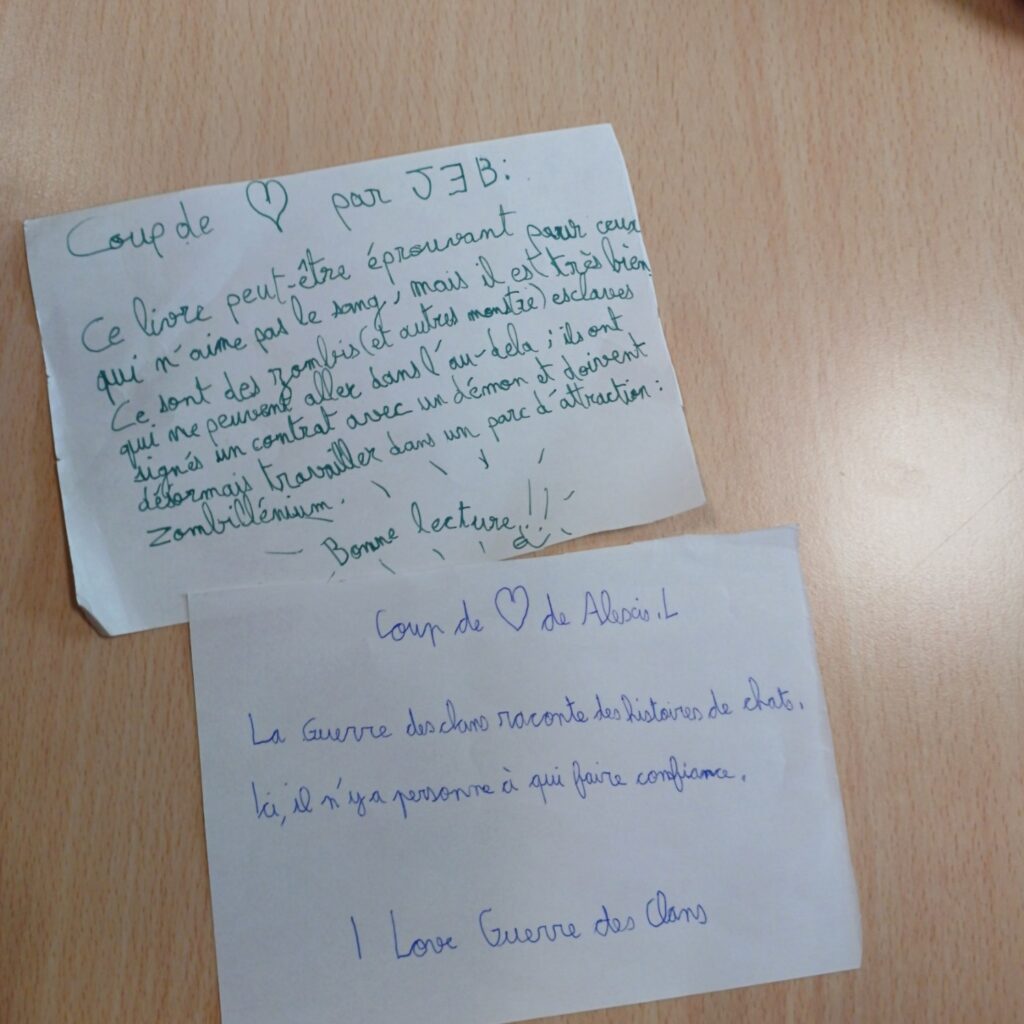 Coup de ♡ par JƎB:
Ce livre peut-être éprouvant pour ceux
qui n'aime pas le sang, mais il est très bien
Ce sont des zombis (et autres monstre) esclaves
qui ne peuvent aller dans l'au-dela ; ils ont
signés un contrat avec un démon et doivent
désormais travailler dans un parc d'attraction :
zombillénium.
Bonne lecture !!
Coup de ♡ de Alexis.L
La Guerre des clans raconte des histoires de chats.
Ici, il n'y a personne à qui faire confiance.
I Love Guerre des Clans